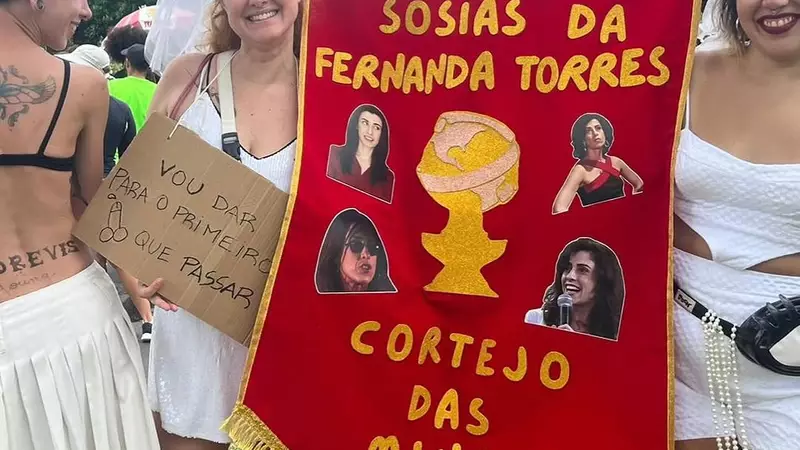 SÓSIAS DA
FERNANDA TORRES
CORTEJO
DAS
VOU DAR
PARA O PRIMEIRO
QUE PASSAR
BREVIS